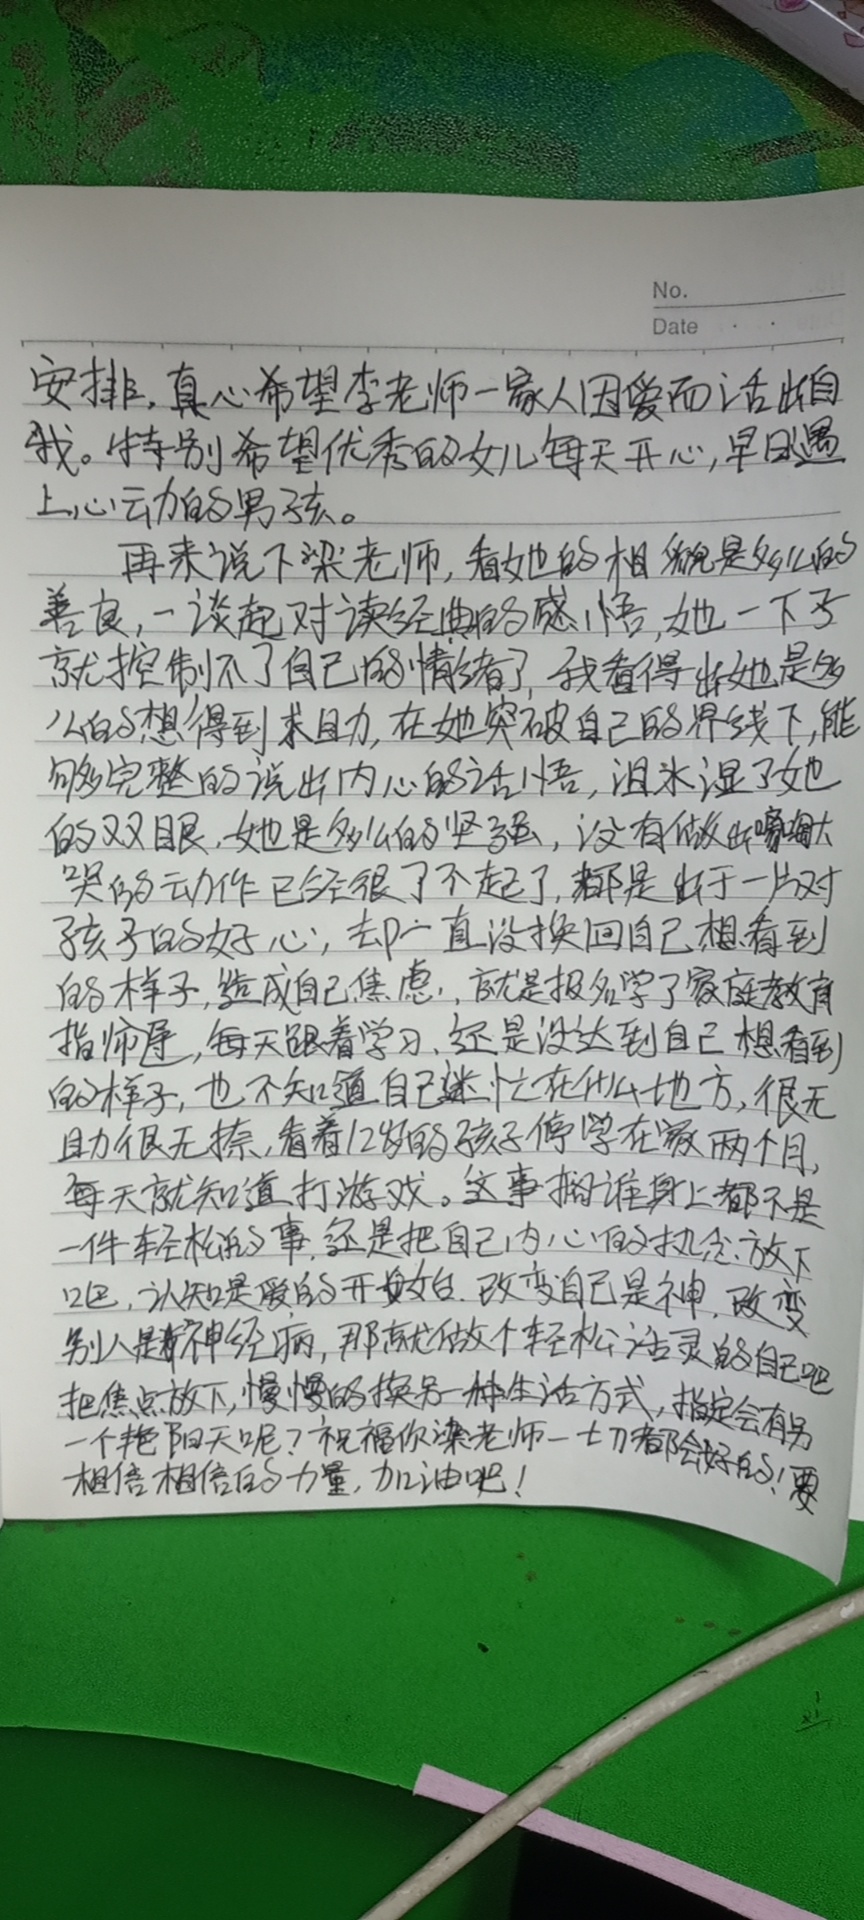 No.
Date
安排,真心希望李老师一家人因爱而活出自
我。特别希望优秀的女儿每天开心,早日遇
上心动的男孩。
再来说下梁老师,看她的相貌是多么的
善良,一谈起对读经典的感悟,她一下子
就控制不了自己的情绪了,我看得出她是多
么的想得到求助,在她突破自己的界线下,能
够完整的说出内心的话悟,泪水湿了她
的双眼,她是多么的坚强,没有做出嚎啕大
哭的动作已经很了不起了,都是出于一片对
孩子的好心,却一直没换回自己想看到
的样子,造成自己焦虑,就是报名学了家庭教育
指师后,每天跟着学习,还是没达到自己想看到
的样子,也不知道自己迷忙在什么地方,很无
助很无捺,看着12岁的孩子停学在家两个月,
每天就知道打游戏。这事搁谁身上都不是
一件轻松的事,还是把自己内心的执念放下
吧,认知是爱的开始,改变自己是神,改变
别人是神经病,那就做个轻松活灵的自己吧
把焦点放下,慢慢的换另一种生活方式,指定会有另
一个艳阳天呢?祝福你梁老师一切都会好的!要
相信相信的力量,加油吧!